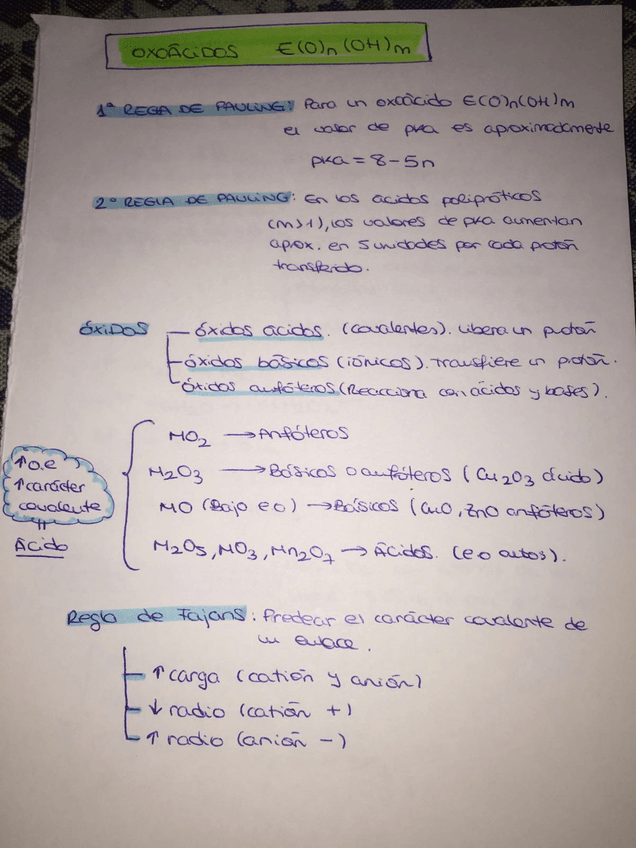 OXOÁCIDOS E(O)n(OH)m
1ª REGLA DE PAULING: Para un oxoácido E(O)n(OH)m
el valor de pka es aproximadamente
pka = 8-5n
2ª REGLA DE PAULING: En los ácidos polipróticos
(m>1), los valores de pka aumentan
aprox. en 5 unidades por cada protón
transferido.
ÓXIDOS — óxidos ácidos. (covalentes). Libera un protón
óxidos básicos (iónicos). Transfiere un protón.
óxidos anfóteros (Reacciona con ácidos y bases).
MO2 → Anfóteros
↑ o.e
↑ carácter
covalente
=
Ácido
M2O3 → Básicos o anfóteros (Cu2O3 ácido)
MO (Bajo eo) → Básicos (CuO, ZnO anfóteros)
M2O5, MO3, Mn2O7 → Ácidos. (eo altos).
Regla de Fajans: Predecir el carácter covalente de
un enlace.
↑ carga (catión y anión)
↓ radio (catión +)
↑ radio (anión -)